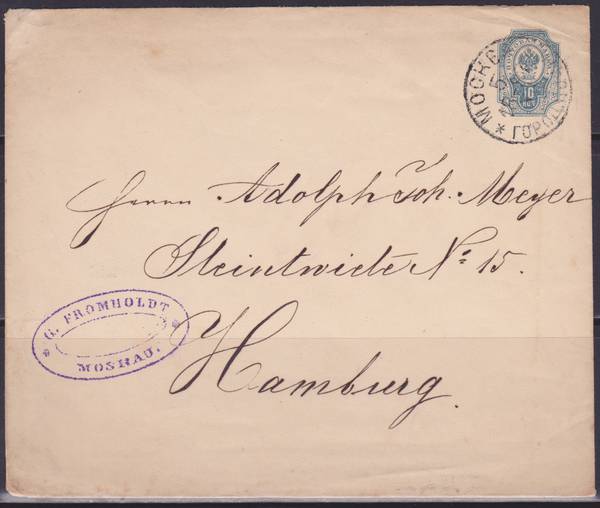 МОСК
5
ГОРОД
10
КОП
Herrn Adolph Joh. Meyer
Steintwiete No: 15.
Hamburg.
G. FROMHOLDT
MOSKAU.